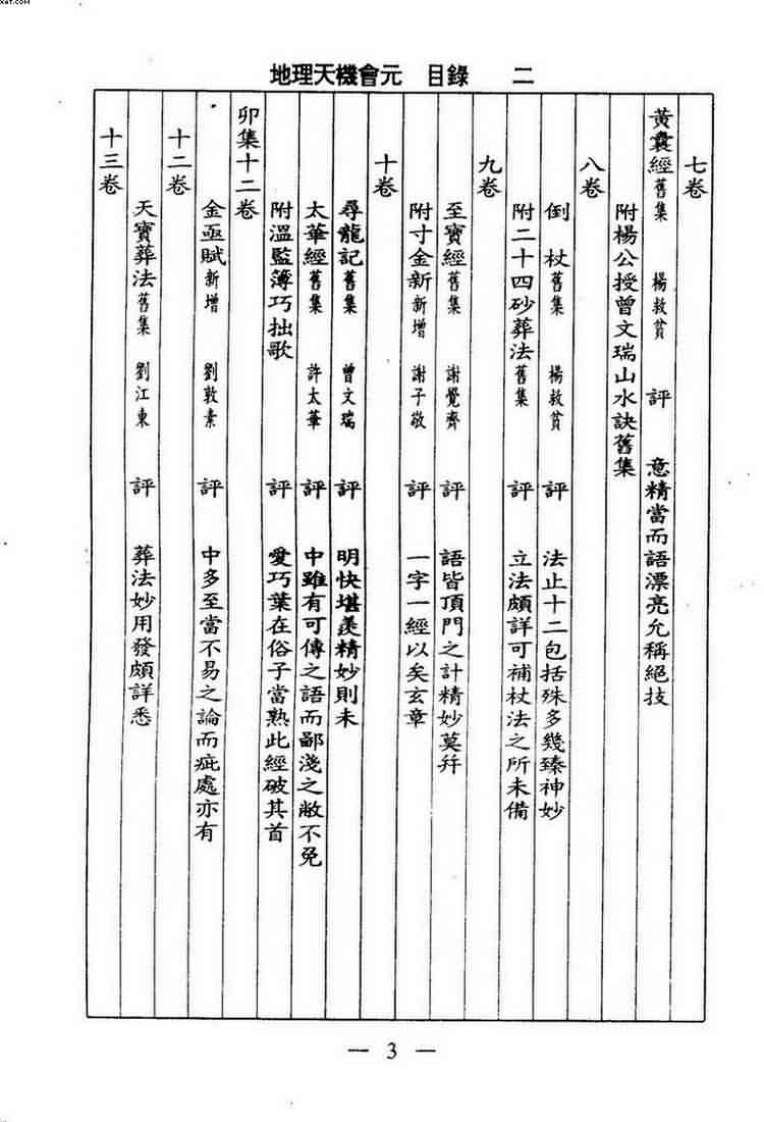 地理天機會元 目錄 二
七卷
黃囊經舊集 楊救貧 評 意精當而語漂亮允稱絕技
附楊公授曾文瑞山水訣舊集
八卷
倒杖舊集 楊救貧 評 法止十二包括殊多幾臻神妙
附二十四砂葬法舊集 評 立法頗詳可補杖法之所未備
九卷
至寶經舊集 謝覺齊 評 語皆頂門之計精妙莫幷
附寸金新新增 謝子敬 評 一字一經以矣玄章
十卷
尋龍記舊集 曾文瑞 評 明快堪羨精妙則未
太華經舊集 許太華 評 中雖有可傳之語而鄙淺之敝不免
附溫監簿巧拙歌 評 愛巧葉在俗子當熟此經破其首
卯集十二卷
金函賦新增 劉敦素 評 中多至當不易之論而疵處亦有
十二卷
天寶葬法舊集 劉江東 評 葬法妙用發頗詳悉
十三卷
— 3 —